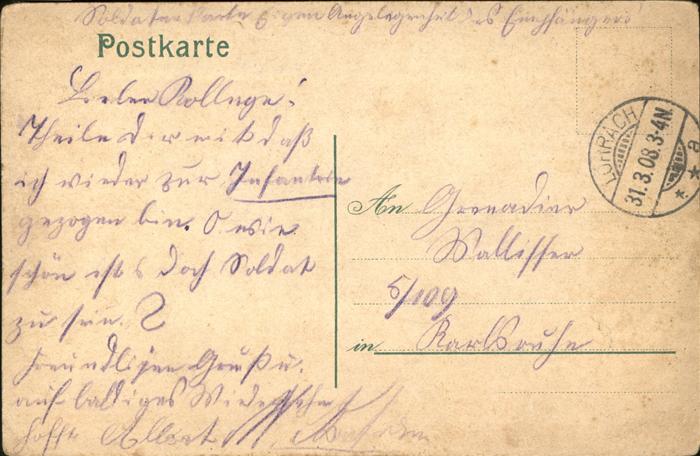 Soldatenkarte Eigene Angelegenheit des Empfängers
Postkarte
Lieber Kollege!
Theile dir mit daß
ich wieder zur Infanterie
gezogen bin. O wie
schön ists doch Soldat
zu sein.
Freundlichen Gruß u.
auf baldiges Wiedersehn
hofft Albert
LÖRRACH
31.3.08.3-4N.
a
An Grenadier
Wallisser
5/109
in Karlsruhe